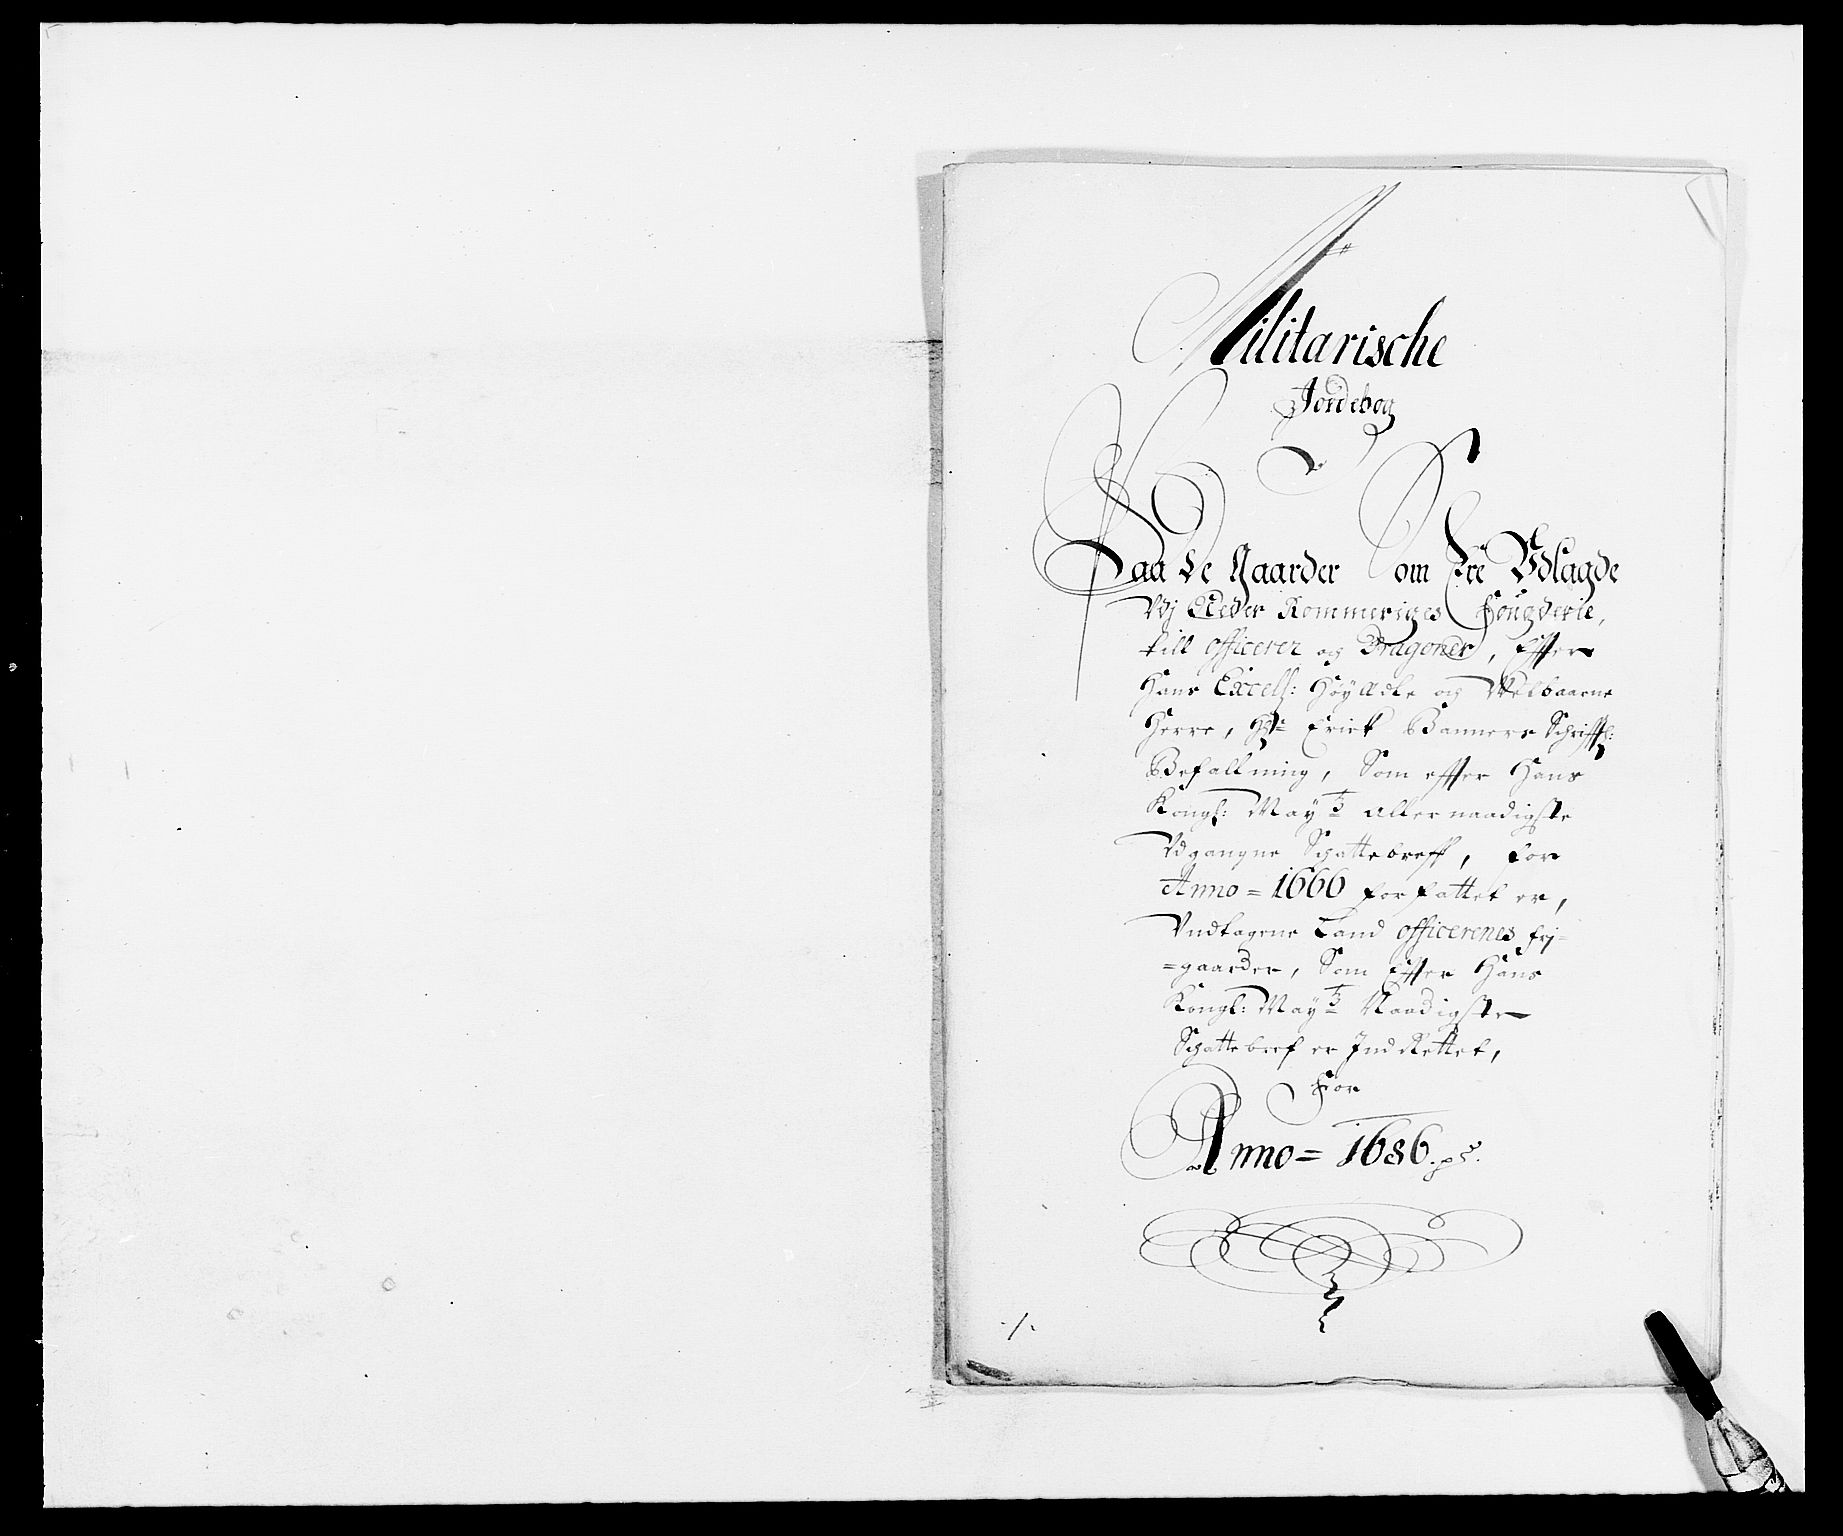 Militarische
Jordebog
Paa De Gaarder Som Ere Udlagde
Vdj Neder Rommeriges Fougderie,
till officerer og Dragoner, Effter
Hans Excell: Höyædle og Welbaarne
Herre, Hr Erick Banners Schrifftl:
Befallning, Som effter Hans
Kongl: Maytz allernaadigste
Udgangne Schattebreff, for
Anno = 1666 forfattet er,
Undtagene Land officerenes frj-
=gaarder, Som Effter Hans
Kongl: Maytz Naadigste
Schattebref er Ind Rettet,
For
Anno = 1686.
·/·